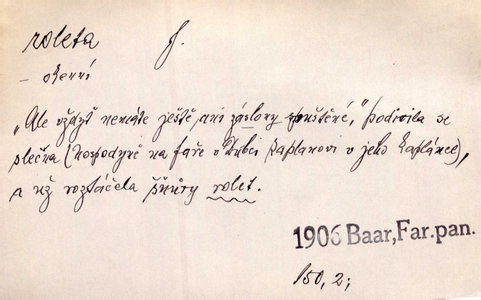 roleta f.
- okenní
„Ale vždyť nemáte ještě ani záslony spuštěné,“ podivila se
slečna (hospodyně na faře v Dubci kaplanovi v jeho kaplance),
a už roztáčela šňůry rolet.
1906 Baar, Far. pan.
150, 2;